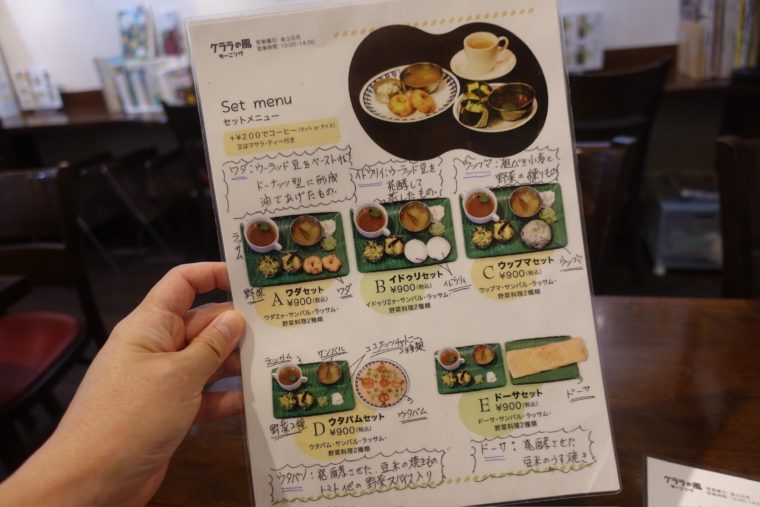 ケララの風
モーニング
営業曜日: 金土日月
営業時間: 10:00-14:00
Set menu
セットメニュー
+¥200でコーヒー(ホット or アイス)
又はマサラ・ティー付き
ワダ:ウーラッド豆をペースト化
ドーナッツ型に形成
油であげたもの.
イドゥリィ:ウーラッド豆を
発酵して
蒸したもの.
ウップマ:粗びき小麦と
野菜の煉りもの
ラッサム
野菜
ワダ
A ワダセット
¥900(税込)
ワダ2ヶ・サンバル・ラッサム・
野菜料理2種類
イドゥリィ
B イドゥリセット
¥900(税込)
イドゥリ2ヶ・サンバル・ラッサム・
野菜料理2種類
ウップマ
C ウップマセット
¥900(税込)
ウップマ・サンバル・ラッサム・
野菜料理2種類
ラッサム
サンバル
ココナッツチャトニー
2種類
野菜2種
ウタパム
D ウタパムセット
¥900(税込)
ウタパム・サンバル・ラッサム・
野菜料理2種類
ドーサ
E ドーサセット
¥900(税込)
ドーサ・サンバル・ラッサム・
野菜料理2種類
ウタパン:発酵させた、豆米の焼きもの
トマト他の野菜スパイス入り
ドーサ:発酵させた
豆米のうす焼き
ケララの風
モーニング
営業曜日: 金土日月
営業時間: 10:00-14:00